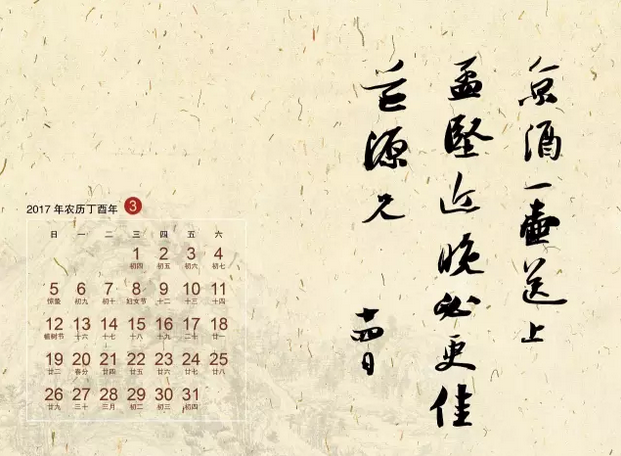 京酒一壷送上
孟堅近晚必更佳
道源兄
十四日
2017 年农历丁酉年 3
日 一 二 三 四 五 六
1 2 3 4
初四 初五 初六 初七
5 6 7 8 9 10 11
惊蛰 初九 初十 妇女节 十二 十三 十四
12 13 14 15 16 17 18
植树节 十六 十七 十八 十九 二十 廿一
19 20 21 22 23 24 25
廿二 春分 廿四 廿五 廿六 廿七 廿八
26 27 28 29 30 31
廿九 三十 三月 初二 初三 初四